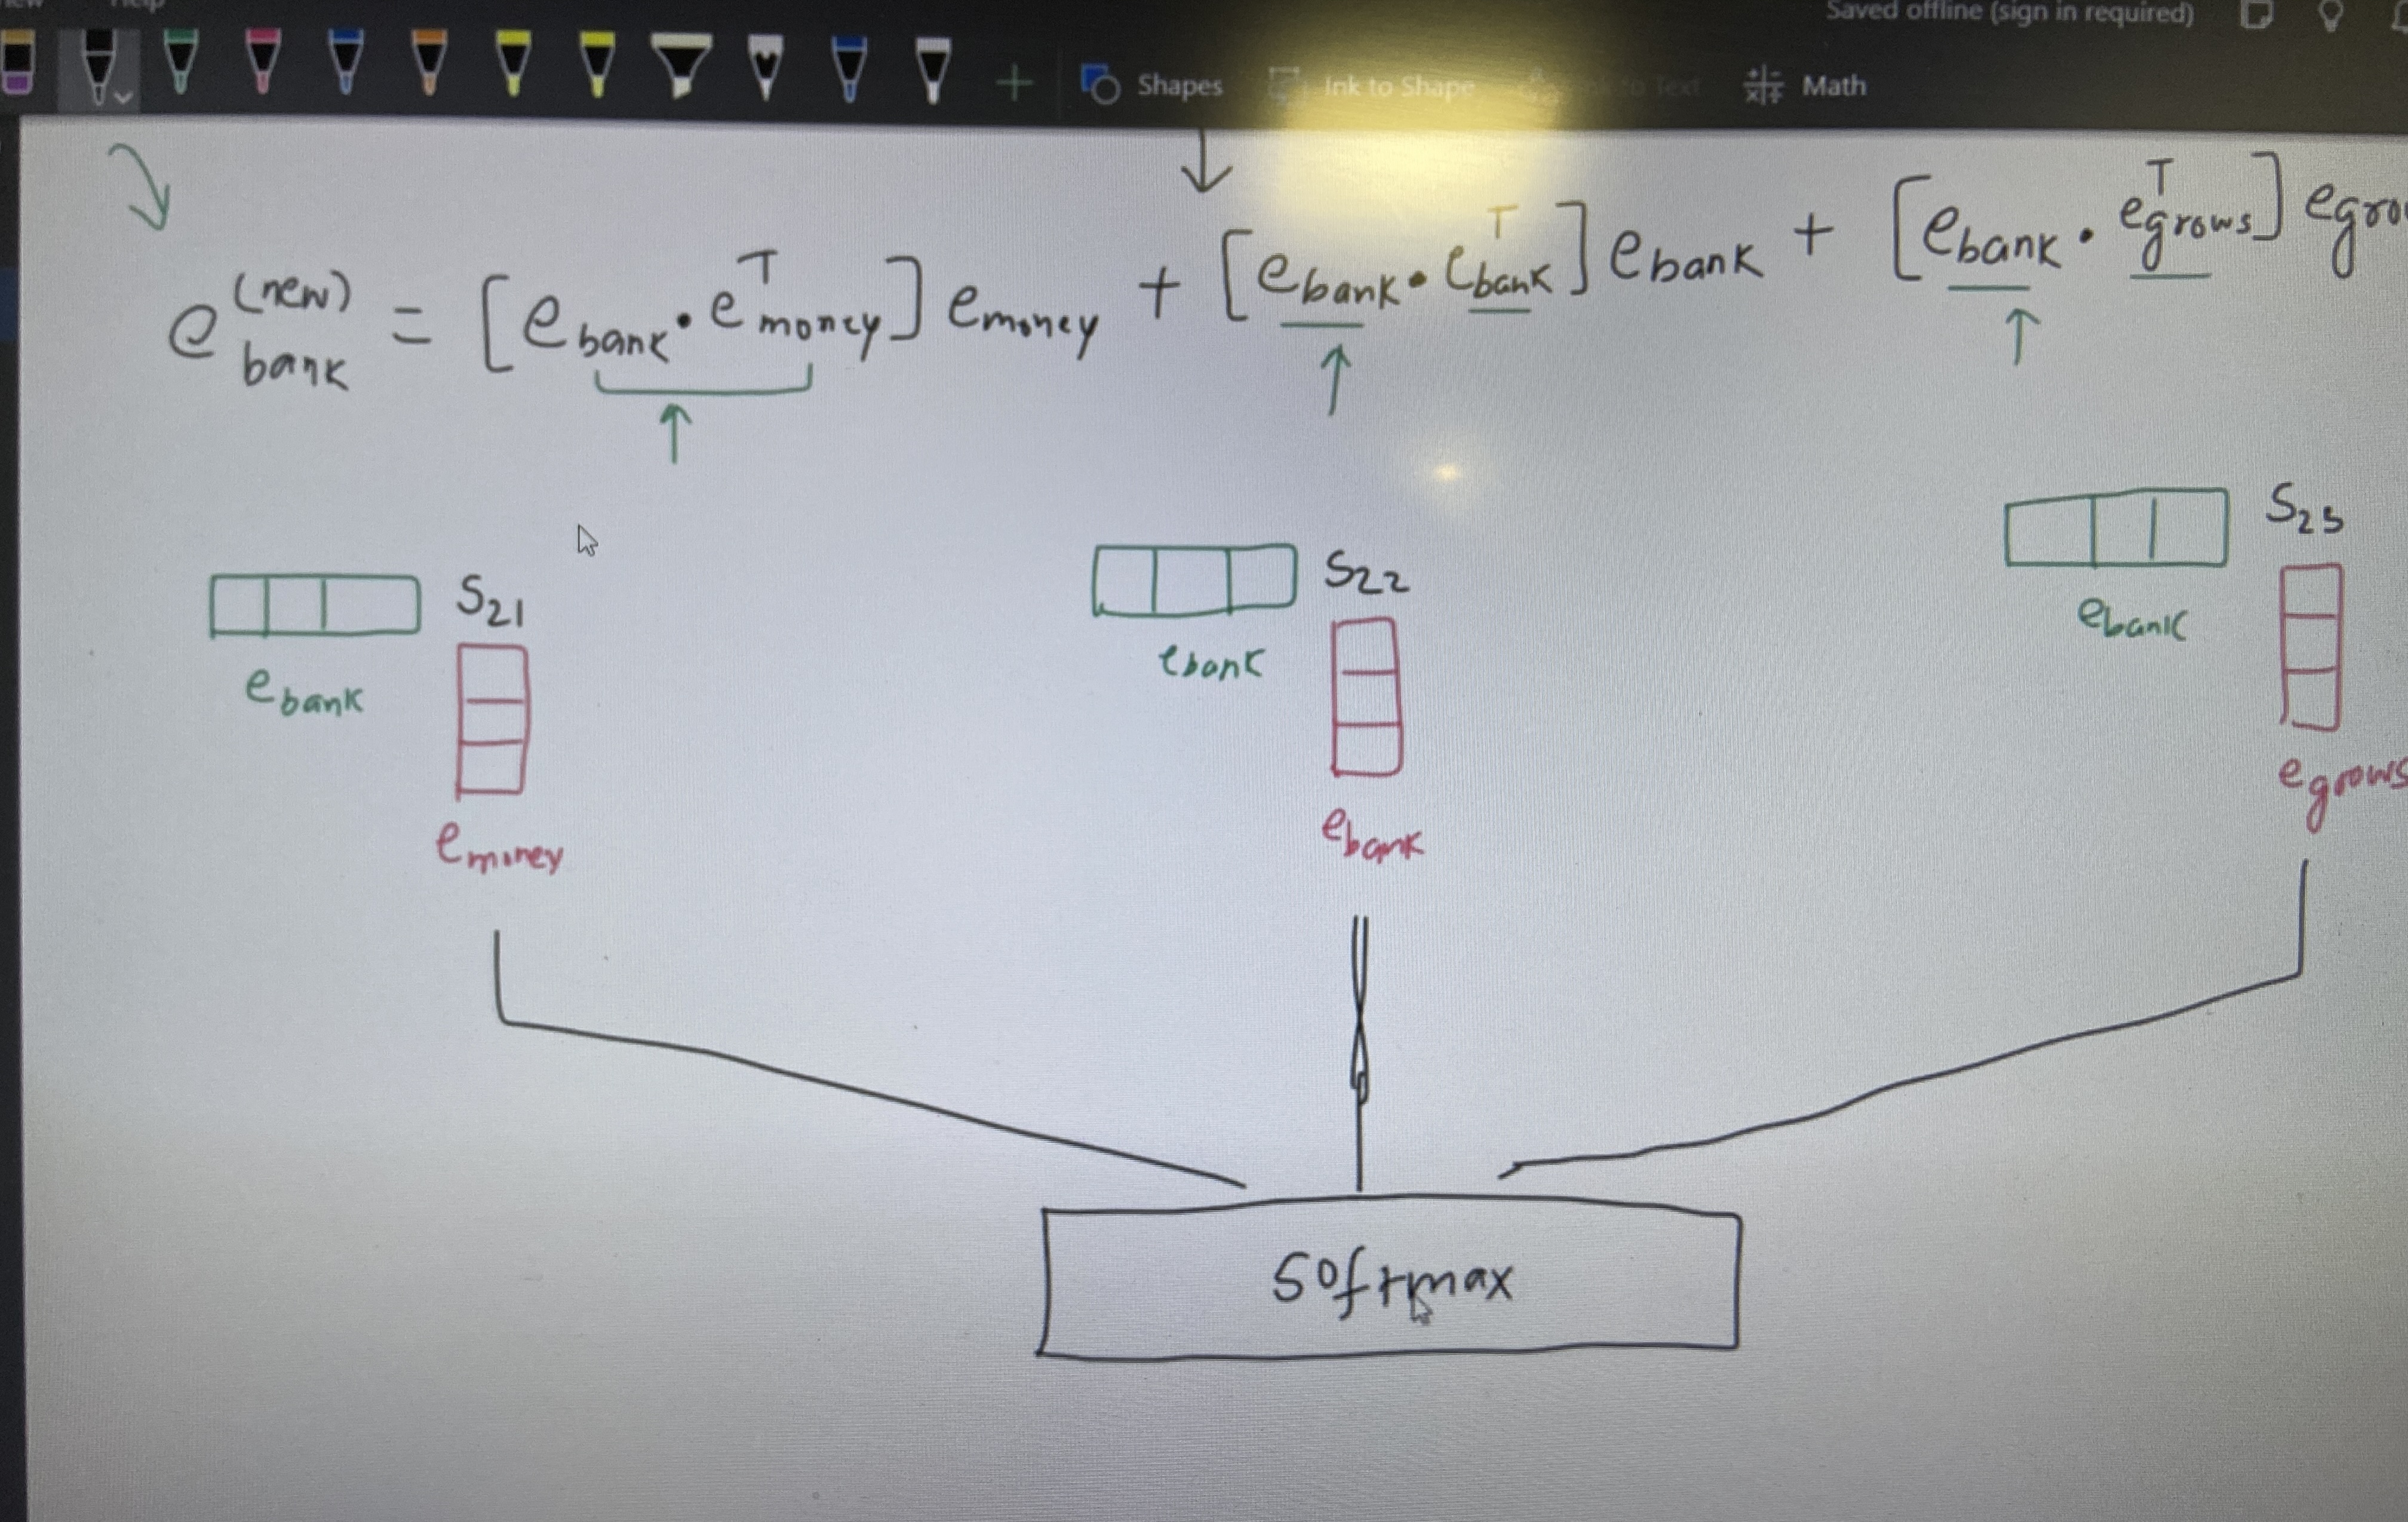 Help
Saved offline (sign in required)
Shapes Ink to Shape to Text Math
e_bank^(new) = [e_bank · e_money^T] e_money + [e_bank · e_bank^T] e_bank + [e_bank · e_grows^T] egro
S21 S22 S23
e_bank e_bank e_bank
e_money e_bank e_grows
Softmax